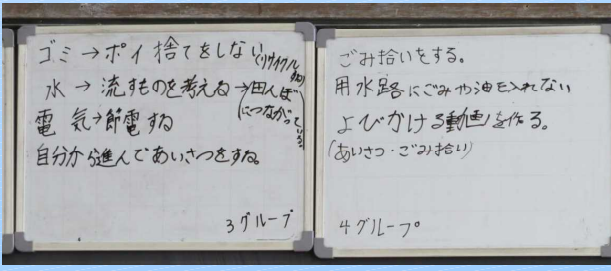 ゴミ→ポイ捨てをしない(リサイクル
水→流すものを考える→田んぼ
につながっている
電気→節電する
自分から進んであいさつをする。
3グループ
ごみ拾いをする。
用水路にごみや油を入れない
よびかける動画を作る。
(あいさつ・ごみ拾い)
4グループ